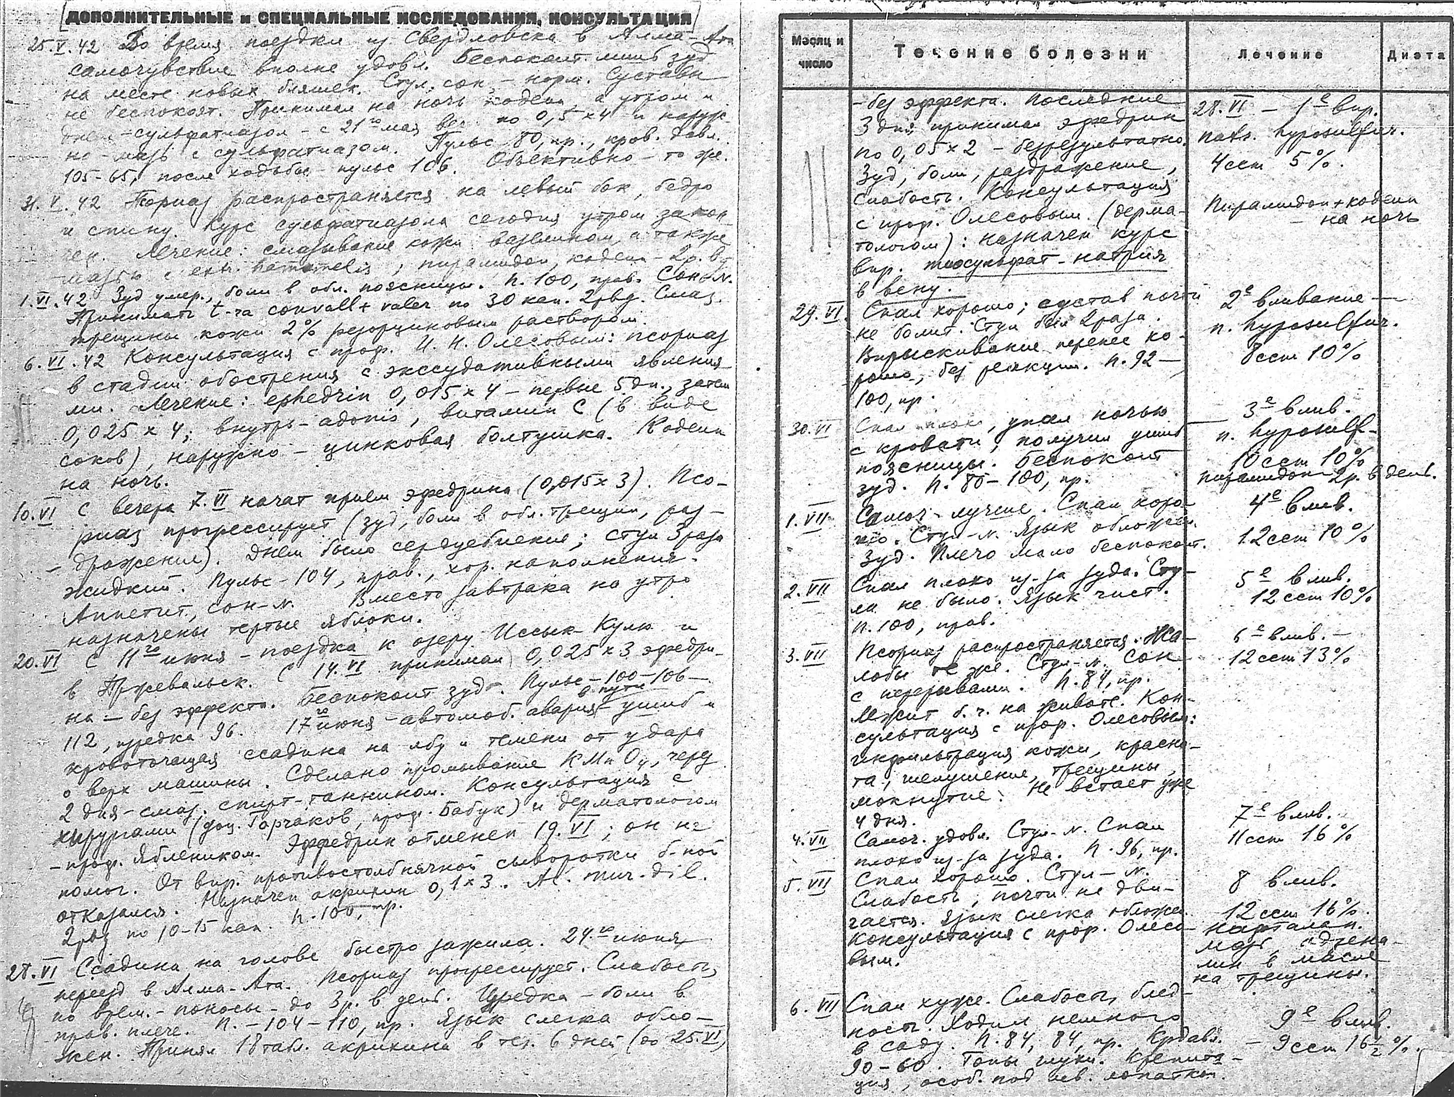 ДОПОЛНИТЕЛЬНЫЕ и СПЕЦИАЛЬНЫЕ ИССЛЕДОВАНИЯ, КОНСУЛЬТАЦИЯ
25.V.42 Во время поездки из Свердловска в Алма-Ата
самочувствие вполне удовл. Беспокоит лишь зуд
на месте новых бляшек. Стул, сон - норм. Суставы
не беспокоят. Принимал на ночь кодеин, а утром и
днем - сульфатиазол - с 21го мая по 0,5 х 4 и наруж-
но - мазь с сульфатиазом. Пульс 80, пр., кров. давл.
105-65, после ходьбы - пульс 106. Объективно - то же.
31.V.42 Псориаз распространяется на левый бок, бедро
и спину. Курс сульфатиазола сегодня утром закон-
чен. Лечение: смазывание кожи вазелином, а также
мазью с ext. hamamelis; пирамидон, кодеин - 2р. в д.
1.VI.42 Зуд умер., боли в обл. поясницы. П. 100, прав. Сон-N.
Принимать t-ra convall + valer. по 30 кап. 2рвд. Смаз.
трещины кожи 2% резорциновым раствором.
6.VI.42 Консультация с проф. И. И. Олесовым: псориаз
в стадии обострения с экссудативными явления-
ми. Лечение: ephedrin 0,015 х 4 - первые 5 дн., затем
0,025 х 4; внутрь - adonis, витамин С (в виде
соков), наружно - цинковая болтушка. Кодеин
на ночь.
10.VI С вечера 7.VI начат прием эфедрина (0,015х3). Псо-
риаз прогрессирует (зуд, боли в обл. трещин, раз-
дражение). Днем было сердцебиение; стул 3 раза
жидкий. Пульс - 104, прав., хор. наполнения.
Аппетит, сон-N. Вместо завтрака на утро
назначены тертые яблоки.
20.VI С 11го июня - поездка к озеру Иссык-Куль и
в Пржевальск. С 14.VI принимал 0,025 х 3 эфедри-
на - без эффекта. Беспокоит зуд. Пульс - 100-106-
112, изредка 96. 17го июня - автомоб. авария в пути - ушиб и
кровоточащая ссадина на лбу и темени от удара
о верх машины. Сделано промывание KMnO4, через
2 дня - смаз. спирт-таннином. Консультация с
хирургами (доц. Горчаков, проф. Бабук) и дерматологом
- проф. Яблеником. Эффедрин отменен 19.VI; он не
помог. От впр. противостолбнячной сыворотки б-ной
отказался. Назначен акрихин 0,1 х 3. Ac. mur. dil.
2рвд по 10-15 кап. П. 100, пр.
28.VI Ссадина на голове быстро зажила. 24го июня
переезд в Алма-Ата. Псориаз прогрессирует. Слабость,
по врем. - поносы - до 3 р. в день. Изредка - боли в
прав. плече. П. - 104-110, пр. Язык слегка обло-
жен. Принял 18 табл. акрихина в теч. 6 дней (до 25.VI)
Месяц и число
Течение болезни
Лечение
Диета
- без эффекта. Последние
3 дня принимал эфедрин
по 0,05 х 2 - безрезультатно.
Зуд, боли, раздражение,
слабость. Консультация
с проф. Олесовым (дерма-
тологом): назначен курс
впр. тиосульфат-натрия
в вену.
28.VI - 1е впр.
natr. hyposulfur.
4 ccm 5%.
Пирамидон + кодеин
- на ночь
29.VI Спал хорошо; сустав почти
не болит. Стул был 2 раза.
Впрыскивание перенес хо-
рошо, без реакции. П. 92-
100, пр.
2е вливание -
n. hyposulfur.
8 ccm 10%
30.VI Спал плохо, упал ночью
с кровати, получил ушиб
поясницы. Беспокоит
зуд. П. 80-100, пр.
3е влив.
n. hyposulf.
10 ccm 10%
пирамидон 2р. в день.
1.VII Самоч. лучше. Спал хоро-
шо. Стул-N. Язык обложен.
Зуд. Плечо мало беспокоит.
4е влив.
12 ccm 10%
2.VII Спал плохо из-за зуда. Сту-
ла не было. Язык чист.
П. 100, прав.
5е влив.
12 ccm 10%
3.VII Псориаз распространяется. Жа-
лобы те же. Стул-N. Сон
с перерывами. П. 84, пр.
Лежит б. ч. на животе. Кон-
сультация с проф. Олесовым:
инфильтрация кожи, красно-
та, шелушение, трещины,
мокнутие. Не встает уже
4 дня.
6е влив. -
12 ccm 13%
4.VII Самоч. удовл. Стул-N. Спал
плохо из-за зуда. П. 96, пр.
7е влив.
11 ccm 16%
5.VII Спал хорошо. Стул-N.
Слабость, почти не дви-
гается. Язык слегка обложен.
Консультация с проф. Олесо-
вым.
8 влив.
12 ccm 16%.
Нафталан.
мазь, адрена-
лин в масле
на трещины.
6.VII Спал хуже. Слабость, блед-
ность. Ходил немного
в саду. П. 84, 84, пр. Кр. давл.
90-60. Тоны глухи. Крепита-
ция, особ. под лев. лопаткой.
9е влив.
- 9 ccm 16 1/2 %.